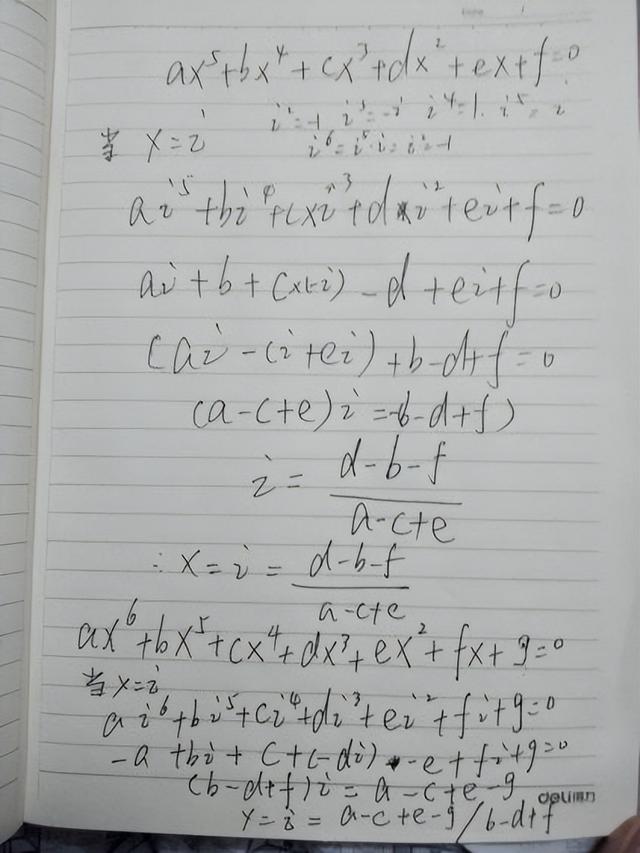 ax⁵+bx⁴+cx³+dx²+ex+f=0
i²=-1 i³=-i i⁴=1. i⁵=i
当 x=i
i⁶=i⁵·i=i²-1
ai⁵+bi⁴+cxi³+dxi²+ei+f=0
ai+b+cx(-i)-d+ei+f=0
(ai-ci+ei)+b-d+f=0
(a-c+e)i=-(b-d+f)
i=(d-b-f)/(a-c+e)
∴x=i=(d-b-f)/(a-c+e)
ax⁶+bx⁵+cx⁴+dx³+ex²+fx+g=0
当x=i
ai⁶+bi⁵+ci⁴+di³+ei²+fi+g=0
-a+bi+c+(-di)-e+fi+g=0
(b-d+f)i=a-c+e-g
x=i=a-c+e-g/b-d+f
deli得力